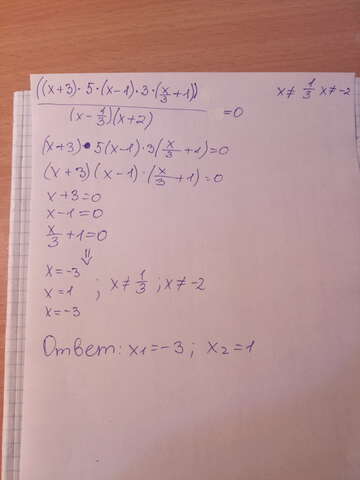 ((x+3)·5·(x-1)·3·(x/3+1)) / (x-1/3)(x+2) =0 x≠1/3 x≠-2
(x+3)·5(x-1)·3(x/3+1)=0
(x+3)(x-1)·(x/3+1)=0
x+3=0
x-1=0
x/3+1=0
⇓
x=-3
x=1 ; x≠1/3 ; x≠-2
x=-3
Ответ: x1=-3; x2=1